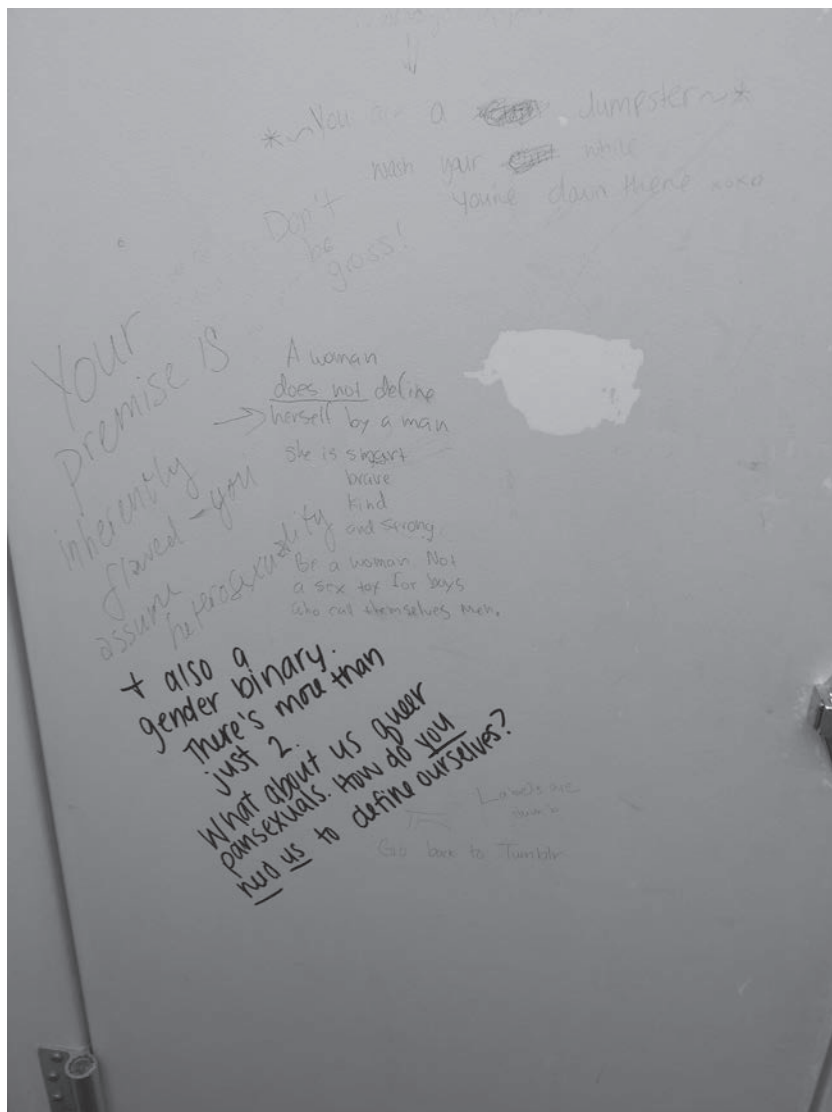 *~You are a dumpster~*
wash your while
you're down there xoxo
Don't
be
gross!
Your
premise is
inherently
flawed - you
assume
heterosexuality
A woman
does not define
herself by a man
she is smart
brave
kind
and strong
Be a woman. Not
a sex toy for boys
who call themselves men.
+ also a
gender binary.
There's more than
just 2.
What about us queer
pansexuals. How do you
need us to define ourselves?
Labels are
dumb
Go back to Tumblr